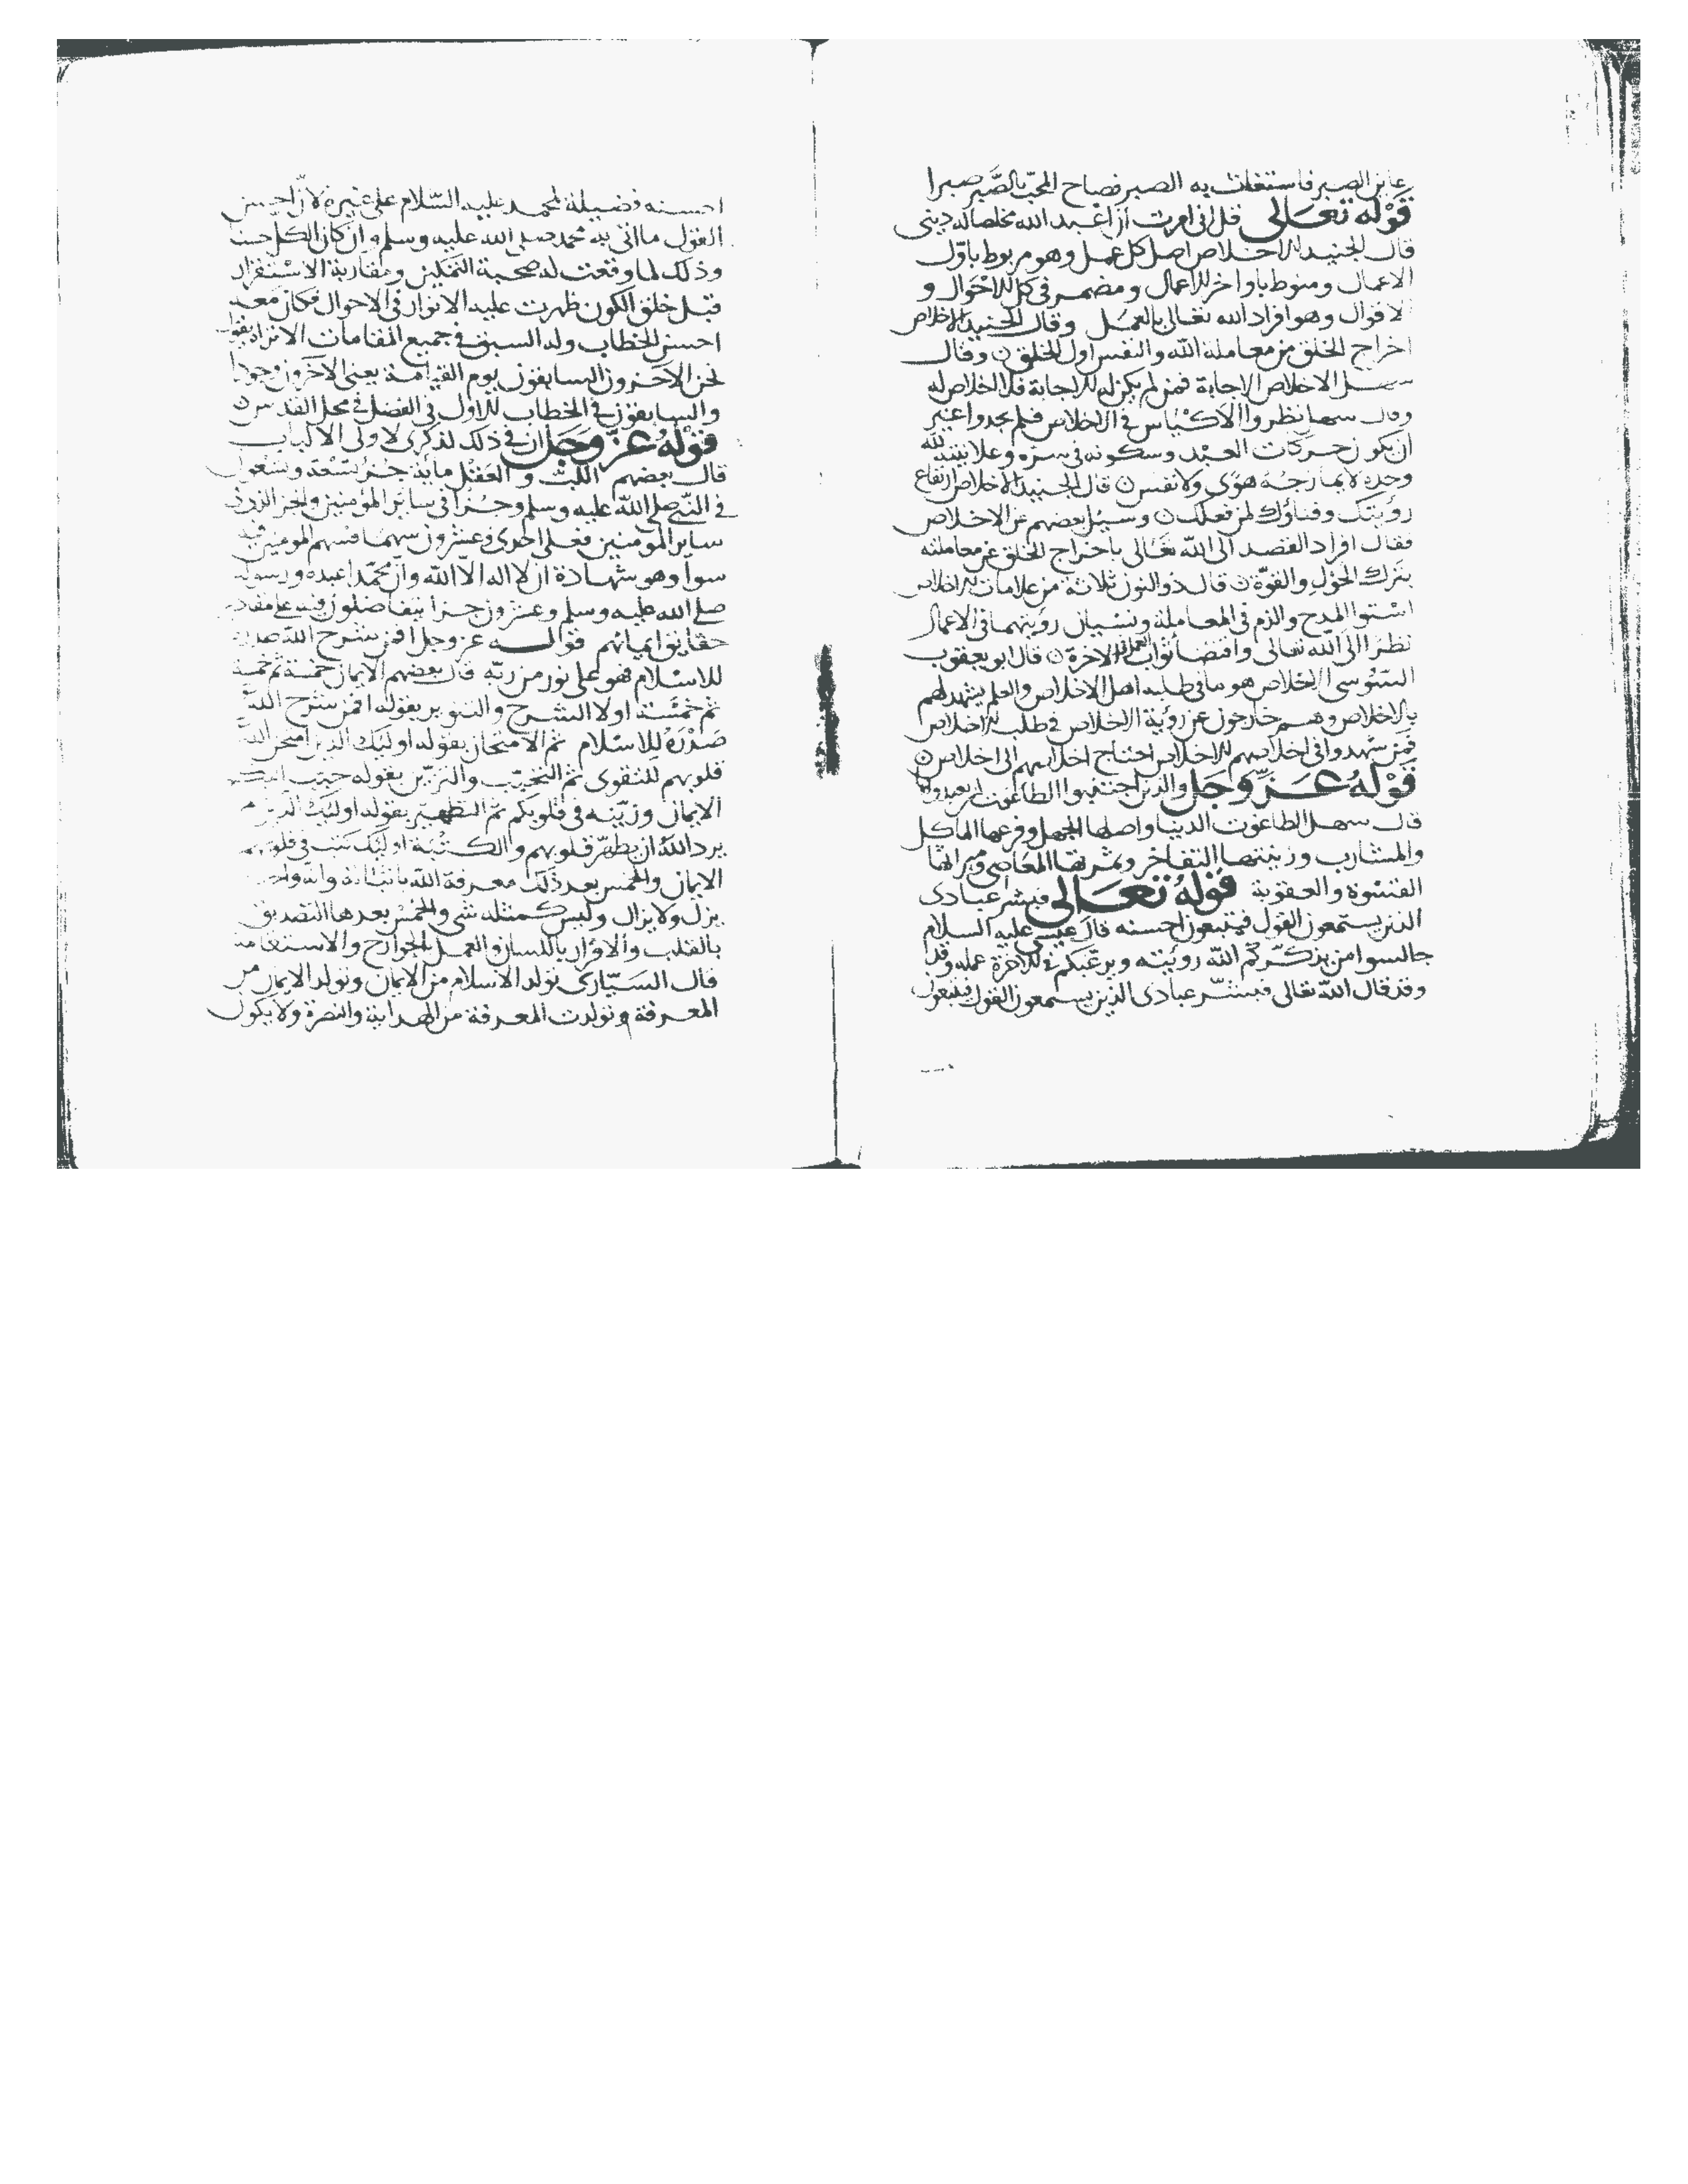 عابن الصبر فاستغاث به الصبر فصاح المحبّ بالصّبر صبرا
قوله تعالى قل انى امرت ان اعبد الله مخلصا له دينى
قال الجنيد الاخلاص اصل كل عمل وهو مربوط باوّل
الاعمال ومنوط باواخر الاعمال ومضمر فى كل الاحوال و
الاقوال وهو افراد الله تعالى بالعمل وقال الجنيد الاخلاص
اخراج الخلق من معاملة الله والنفس اول الخلق ن وقال
سهل الاخلاص الاجابة فمن لم يكن له الاجابة فلا اخلاص له
وقال سهل نظروا الاكياس فى الاخلاص فلم يجدوا غير
ان يكون حركات العبد وسكونه فى سره وعلانيته لله
وحده لا يمازجه هوى ولا نفس ن قال الجنيد الاخلاص ارتفاع
رؤيتك وفناؤك من فعلك ن وسئل بعضهم عن الاخلاص
فقال افراد القصد الى الله تعالى باخراج الخلق عن معاملته
بترك الحول والقوّة ن قال ذو النون ثلاثة من علامات الاخلاص
استوا المدح والذم فى المعاملة ونسيان رؤيتهما فى الاعمال
نظرا الى الله تعالى واقتضا ثواب العمل فى الاخرة ن قال ابو يعقوب
السوسى الاخلاص هو ما فى طلبه اهل الاخلاص والعلم يشهد لهم
بالاخلاص وهم خارجون عن رؤية الاخلاص فى طلب الاخلاص
فمن شهدوا فى اخلاصهم الاخلاص احتاج اخلاصهم الى اخلاص ن
قوله عزّ وجلّ والذين اجتنبوا الطاغوت ان يعبدوها
قال سهل الطاغوت الدنيا واصلها الجهل وفرعها الماكل
والمشارب وزينتها التفاخر وثمرتها المعاصى وميراثها
القسوة والعقوبة قوله تعالى فبشر عبادى
الذين يستمعون القول فيتبعون احسنه قال عيسى عليه السلام
جالسوا من يذكّركم الله رويته ويرغبكم فى الاخرة عمله وقد
وقد قال الله تعالى فبشّر عبادى الذين يستمعون القول فيتبعون
احسنه فضيلة لمحمد عليه السّلام على غيره لانّ احسن
القول ما اتى به محمد صلى الله عليه وسلم وان كان الكل حسنا
وذلك لما وقعت له صحبة التمكين ومقاربة الاستقرار
قبل خلق الكون ظهرت عليه الانوار فى الاحوال فكان معه
احسن الخطاب وله السبق فى جميع المقامات الا تراه يقول
نحن الاخرون السابقون يوم القيامة يعنى الآخرون وجودا
والسابقون فى الخطاب الاول فى الفضل فى محل القدس ن
قوله عزّ وجلّ ان فى ذلك لذكرى لاولى الالباب
قال بعضهم اللبّ و العقل مائة جزء تسعة وتسعون
فى النّبى صلى الله عليه وسلم وجزا فى سائر المؤمنين والجز الذى فى
ساير المومنين فعلى احدى وعشرون سهما فسهم المومنين فيه
سوا وهو شهادة ان لا اله الّا الله وانّ محمّدا عبده ورسوله
صلى الله عليه وسلم وعشرون جزا يتفاضلون فيه على مقادير
حقايق ايمانهم قوله عز وجل افمن شرح الله صدره
للاسلام فهو على نور من ربّه قال بعضهم الايمان خمسة ثم خمسة
ثم خمسة اولا الشرح والتنوير بقوله افمن شرح الله
صدره للاسلام ثم الامتحان بقوله اولئك الذين امتحن الله
قلوبهم للتقوى ثم التحبّب والتزيّن بقوله حبّب اليكم
الايمان وزيّنه فى قلوبكم ثم التطهير بقوله اولئك الذين لم
يرد الله ان يطهّر قلوبهم والكتبة اولئك كتب فى قلوبهم
الايمان والخمس بعد ذلك معرفة الله باثباته وانه واحد لم
يزل ولا يزال وليس كمثله شى والخمس بعدها التصديق
بالقلب والاقرار باللسان والعمل بالجوارح والاستقامة
قال السيّارى تولد الاسلام من الايمان وتولد الايمان من
المعرفة وتولدت المعرفة من الهداية والنصرة ولا يكون